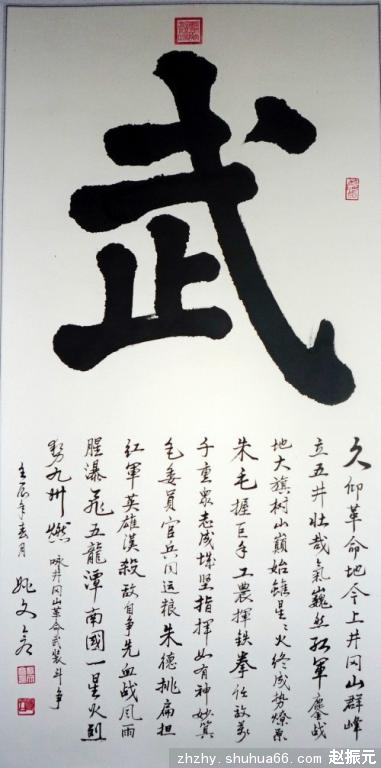 武
久仰革命地今上井冈山群峰
立五井壮哉氣巍然红軍鏖战
地大旗树山巅始雖星々火终成势燎原
朱毛握巨手工農揮铁拳任敌万
千重眾志成城坚指揮如有神妙算
毛委員官兵同运粮朱德挑扁担
红軍英雄漢殺敌自争先血战风雨
腥瀑飛五龍潭南國一星火烈
势九州燃 咏井冈山革命武装斗争
壬辰年春月 姚文
zhzhy.shuhua66.com 赵振元